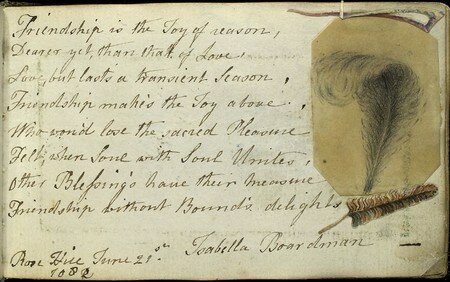 Friendship is the Joy of reason,
Dearer yet, than that of Love,
Love, but lasts a transient Season,
Friendship makes the Joy above,
Who wou'd lose the sacred Pleasure
Felt, when Soul with Soul Unites,
Other Blessing's have their measure
Friendship without Bound's delights
Isabella Boardman
Rose Hill June 21st